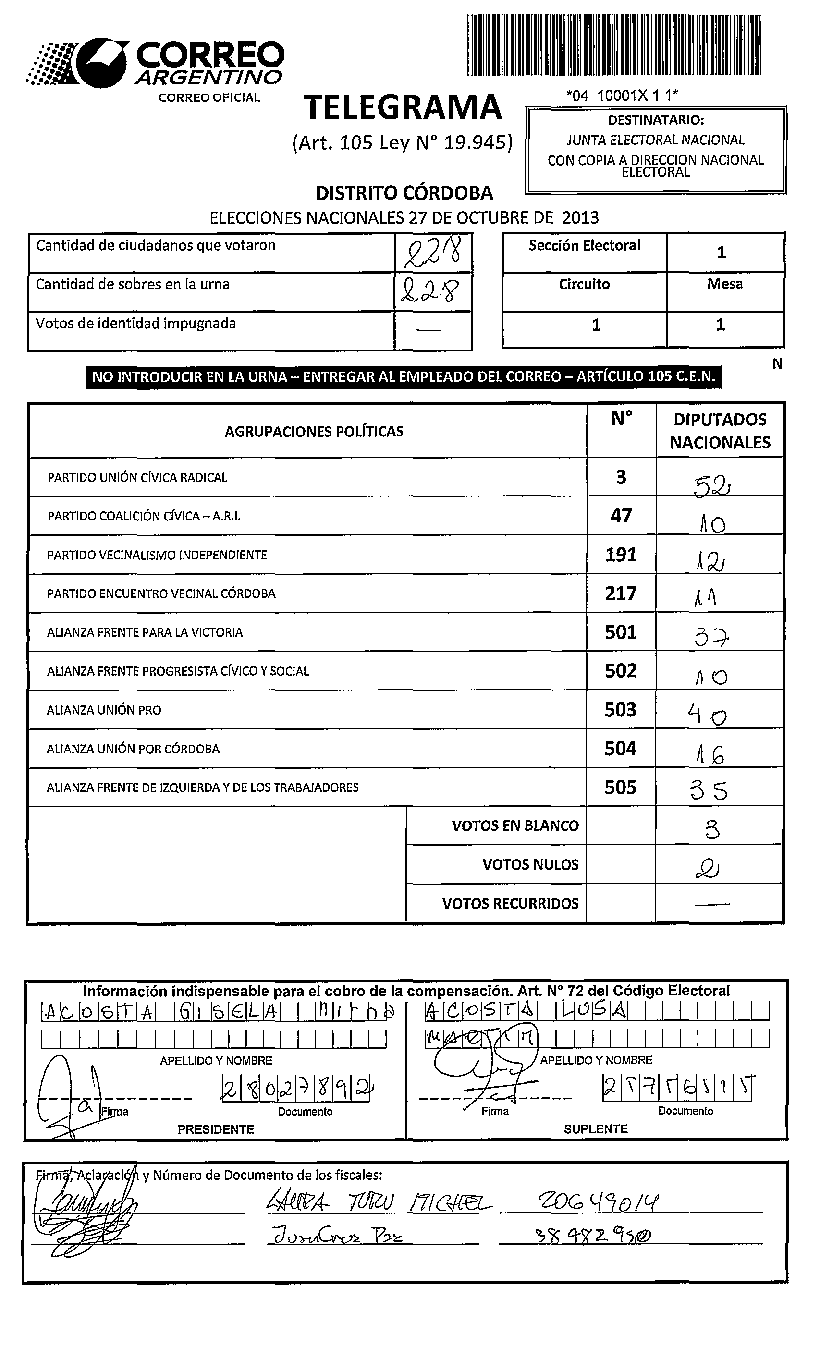 CORREO
ARGENTINO
CORREO OFICIAL
*04 10001X 1 1*
TELEGRAMA
(Art. 105 Ley N° 19.945)
DESTINATARIO:
JUNTA ELECTORAL NACIONAL
CON COPIA A DIRECCION NACIONAL
ELECTORAL
DISTRITO CÓRDOBA
ELECCIONES NACIONALES 27 DE OCTUBRE DE 2013
Cantidad de ciudadanos que votaron 228
Cantidad de sobres en la urna 228
Votos de identidad impugnada —
Sección Electoral 1
Circuito Mesa
1 1
N
NO INTRODUCIR EN LA URNA – ENTREGAR AL EMPLEADO DEL CORREO – ARTÍCULO 105 C.E.N.
AGRUPACIONES POLÍTICAS N° DIPUTADOS NACIONALES
PARTIDO UNIÓN CÍVICA RADICAL 3 52
PARTIDO COALICIÓN CÍVICA – A.R.I. 47 10
PARTIDO VECINALISMO INDEPENDIENTE 191 12
PARTIDO ENCUENTRO VECINAL CÓRDOBA 217 11
ALIANZA FRENTE PARA LA VICTORIA 501 37
ALIANZA FRENTE PROGRESISTA CÍVICO Y SOCIAL 502 10
ALIANZA UNIÓN PRO 503 40
ALIANZA UNIÓN POR CÓRDOBA 504 16
ALIANZA FRENTE DE IZQUIERDA Y DE LOS TRABAJADORES 505 35
VOTOS EN BLANCO 3
VOTOS NULOS 2
VOTOS RECURRIDOS —
Información indispensable para el cobro de la compensación. Art. N° 72 del Código Electoral
ACOSTA GISELA
ACOSTA LUSA
APELLIDO Y NOMBRE
APELLIDO Y NOMBRE
28027892
Firma Documento
Firma Documento
PRESIDENTE
SUPLENTE
Firma, Aclaración y Número de Documento de los fiscales:
LAURA MICHEL 20649014
Juan Cruz Paz 38482950